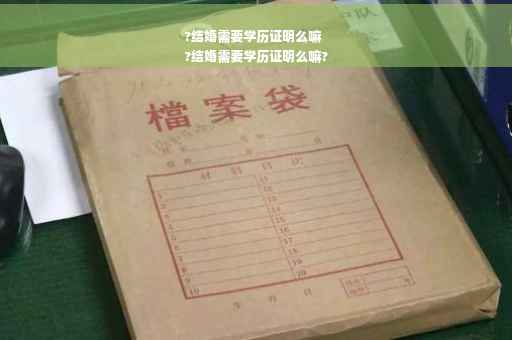 ?结婚需要学历证明么嘛
?结婚需要学历证明么嘛?
檔案袋
材料目次
1 11
2 12
3 13
4 14
5 15
6 16
7 17
8 18
9 19
10 20
年 月 日